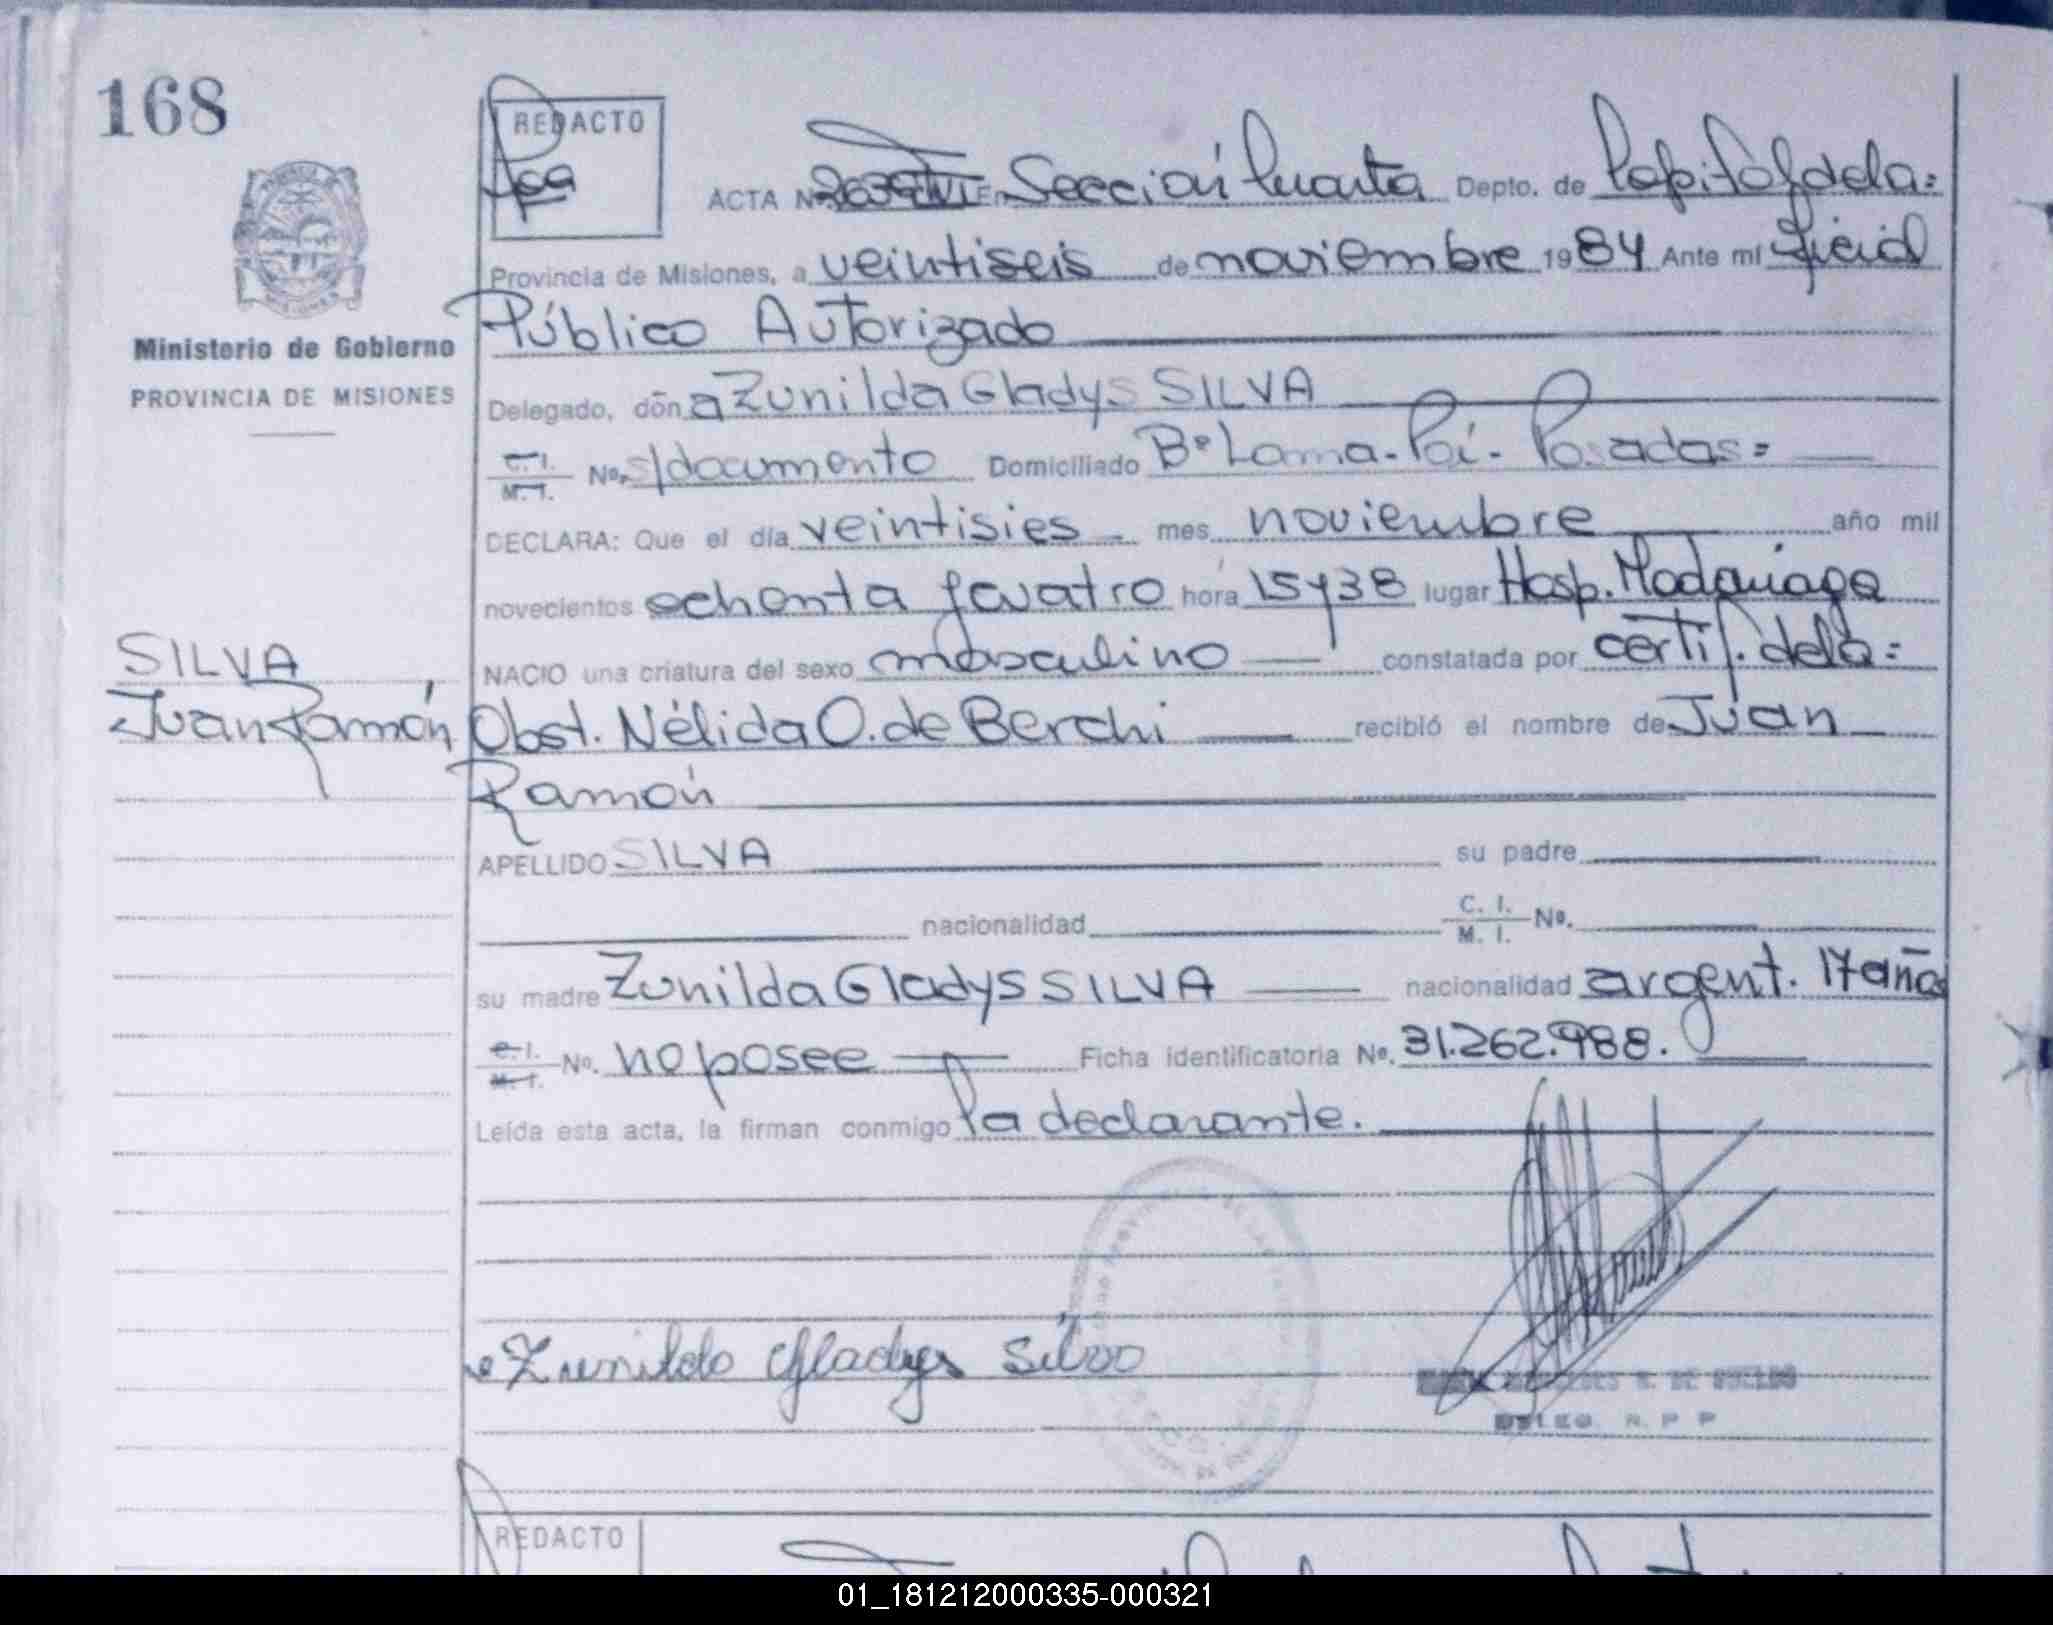 168
REDACTO
ACTA Nº 2639 TVI En Sección Cuarta Depto. de Capital de la=
Provincia de Misiones, a veintiseis de noviembre 1984 Ante mí Oficial
Público Autorizado
Ministerio de Gobierno
PROVINCIA DE MISIONES
Delegado, dōn a Zunilda Gladys SILVA
C. I. M. I. No. s/documento Domiciliado Bº Loma-Poí- Posadas=
DECLARA: Que el día veintisies mes noviembre año mil
novecientos ochenta y cuatro hora 15 y 38 lugar Hosp. Madariaga
NACIO una criatura del sexo masculino constatada por certif. de la=
Obst. Nélida O. de Berchi recibió el nombre de Juan
Ramón
SILVA
Juan Ramón
APELLIDO SILVA su padre
nacionalidad C. I. M. I. Nº.
su madre Zunilda Gladys SILVA nacionalidad argent. 17 años
C. I. M. I. No. no posee Ficha identificatoria Nº. 31.262.988.
Leída esta acta, la firman conmigo la declarante.
Zunilda Gladys Silva
DE
R. P P
REDACTO
01_181212000335-000321